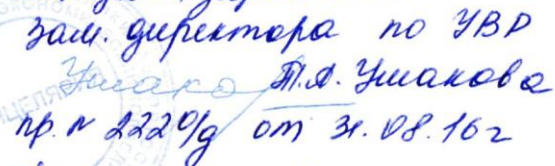 зам. директора по УВР
Ушако Т.А. Ушакова
пр. № 222 о/д от 31.08.16 г